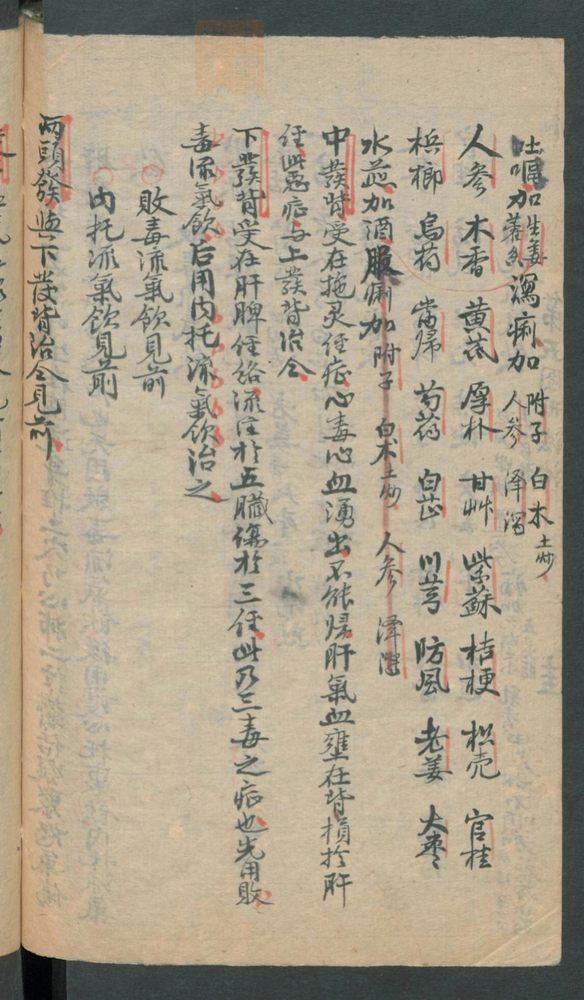 吐嘔加生姜藿魚 瀉痢加附子 白术土炒 人參 澤瀉
人參 木香 黃芪 厚朴 甘艸 紫蘇 桔梗 枳壳 官桂
梹榔 烏葯 當歸 芍葯 白芷 川芎 防風 老姜 大棗
水蓝加酒服痢加附子 白术土炒 人參 澤瀉
中發背受在拖灵任症心毒心血湧出不能歸肝氣血壅在背損扵肝
任此惡症与上發背治仝
下發背受在肝脾任絡流注扵五臟傷扵三任此乃三毒之症也先用敗
毒流氣飲后用内托流氣飲治之
敗毒流氣飲見前
内托流氣飲見前
两頭發與下發背治仝見前